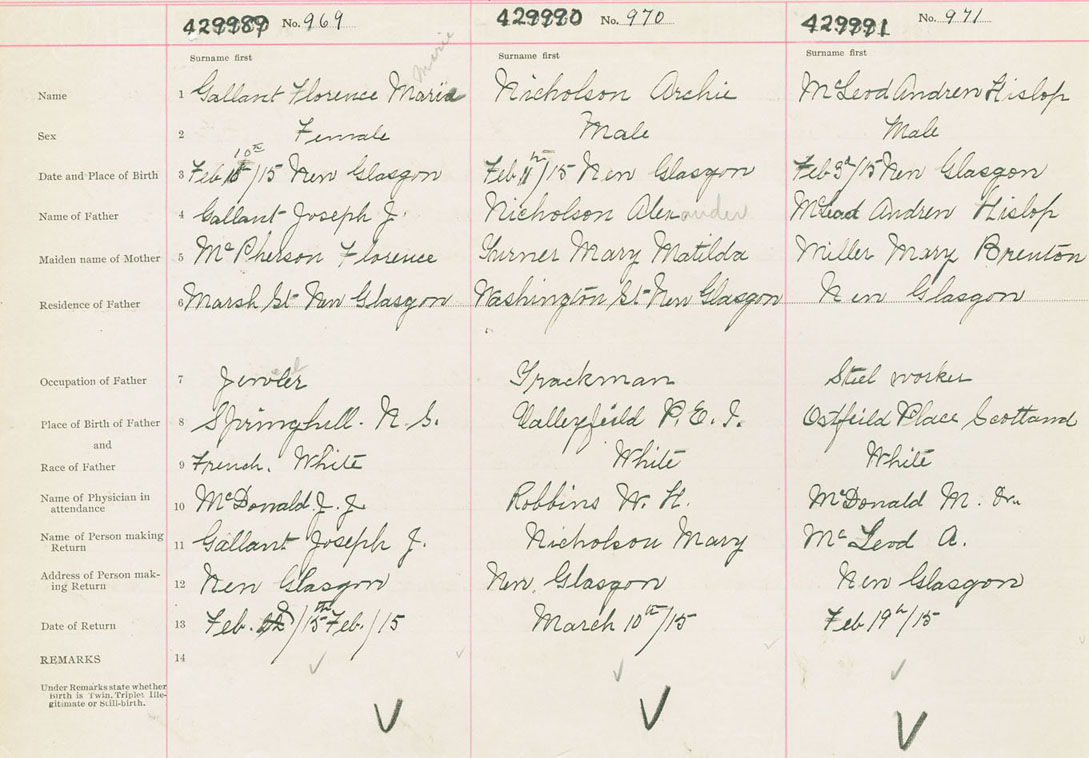 429989 No. 969 429990 No. 970 429991 No. 971
Surname first Surname first Surname first
Marie
Name 1 Gallant Florence Maria Nicholson Archie McLeod Andrew Hislop
Sex 2 Female Male Male
10th
Date and Place of Birth 3 Feb /15 New Glasgow Feb 11th/15 New Glasgow Feb 3d/15 New Glasgow
Name of Father 4 Gallant Joseph J. Nicholson Alexander McLeod Andrew Hislop
Maiden name of Mother 5 McPherson Florence Turner Mary Matilda Miller Mary Brenton
Residence of Father 6 Marsh St New Glasgow Washington St New Glasgow New Glasgow
Occupation of Father 7 Jewler Trackman Steel worker
Place of Birth of Father 8 Springhill. N. S. Valleyfield P. E. I. Ostfeild Place Scottand
and
Race of Father 9 French. White White White
Name of Physician in attendance 10 McDonald J. J. Robbins W. H. McDonald M. Dr.
Name of Person making Return 11 Gallant Joseph J. Nicholson Mary McLeod A.
Address of Person making Return 12 New Glasgow New. Glasgow New Glasgow
Date of Return 13 Feb. /15th Feb./15 March 10th/15 Feb 19th/15
REMARKS 14
Under Remarks state whether
Birth is Twin, Triplet Ille-
gitimate or Still-birth.